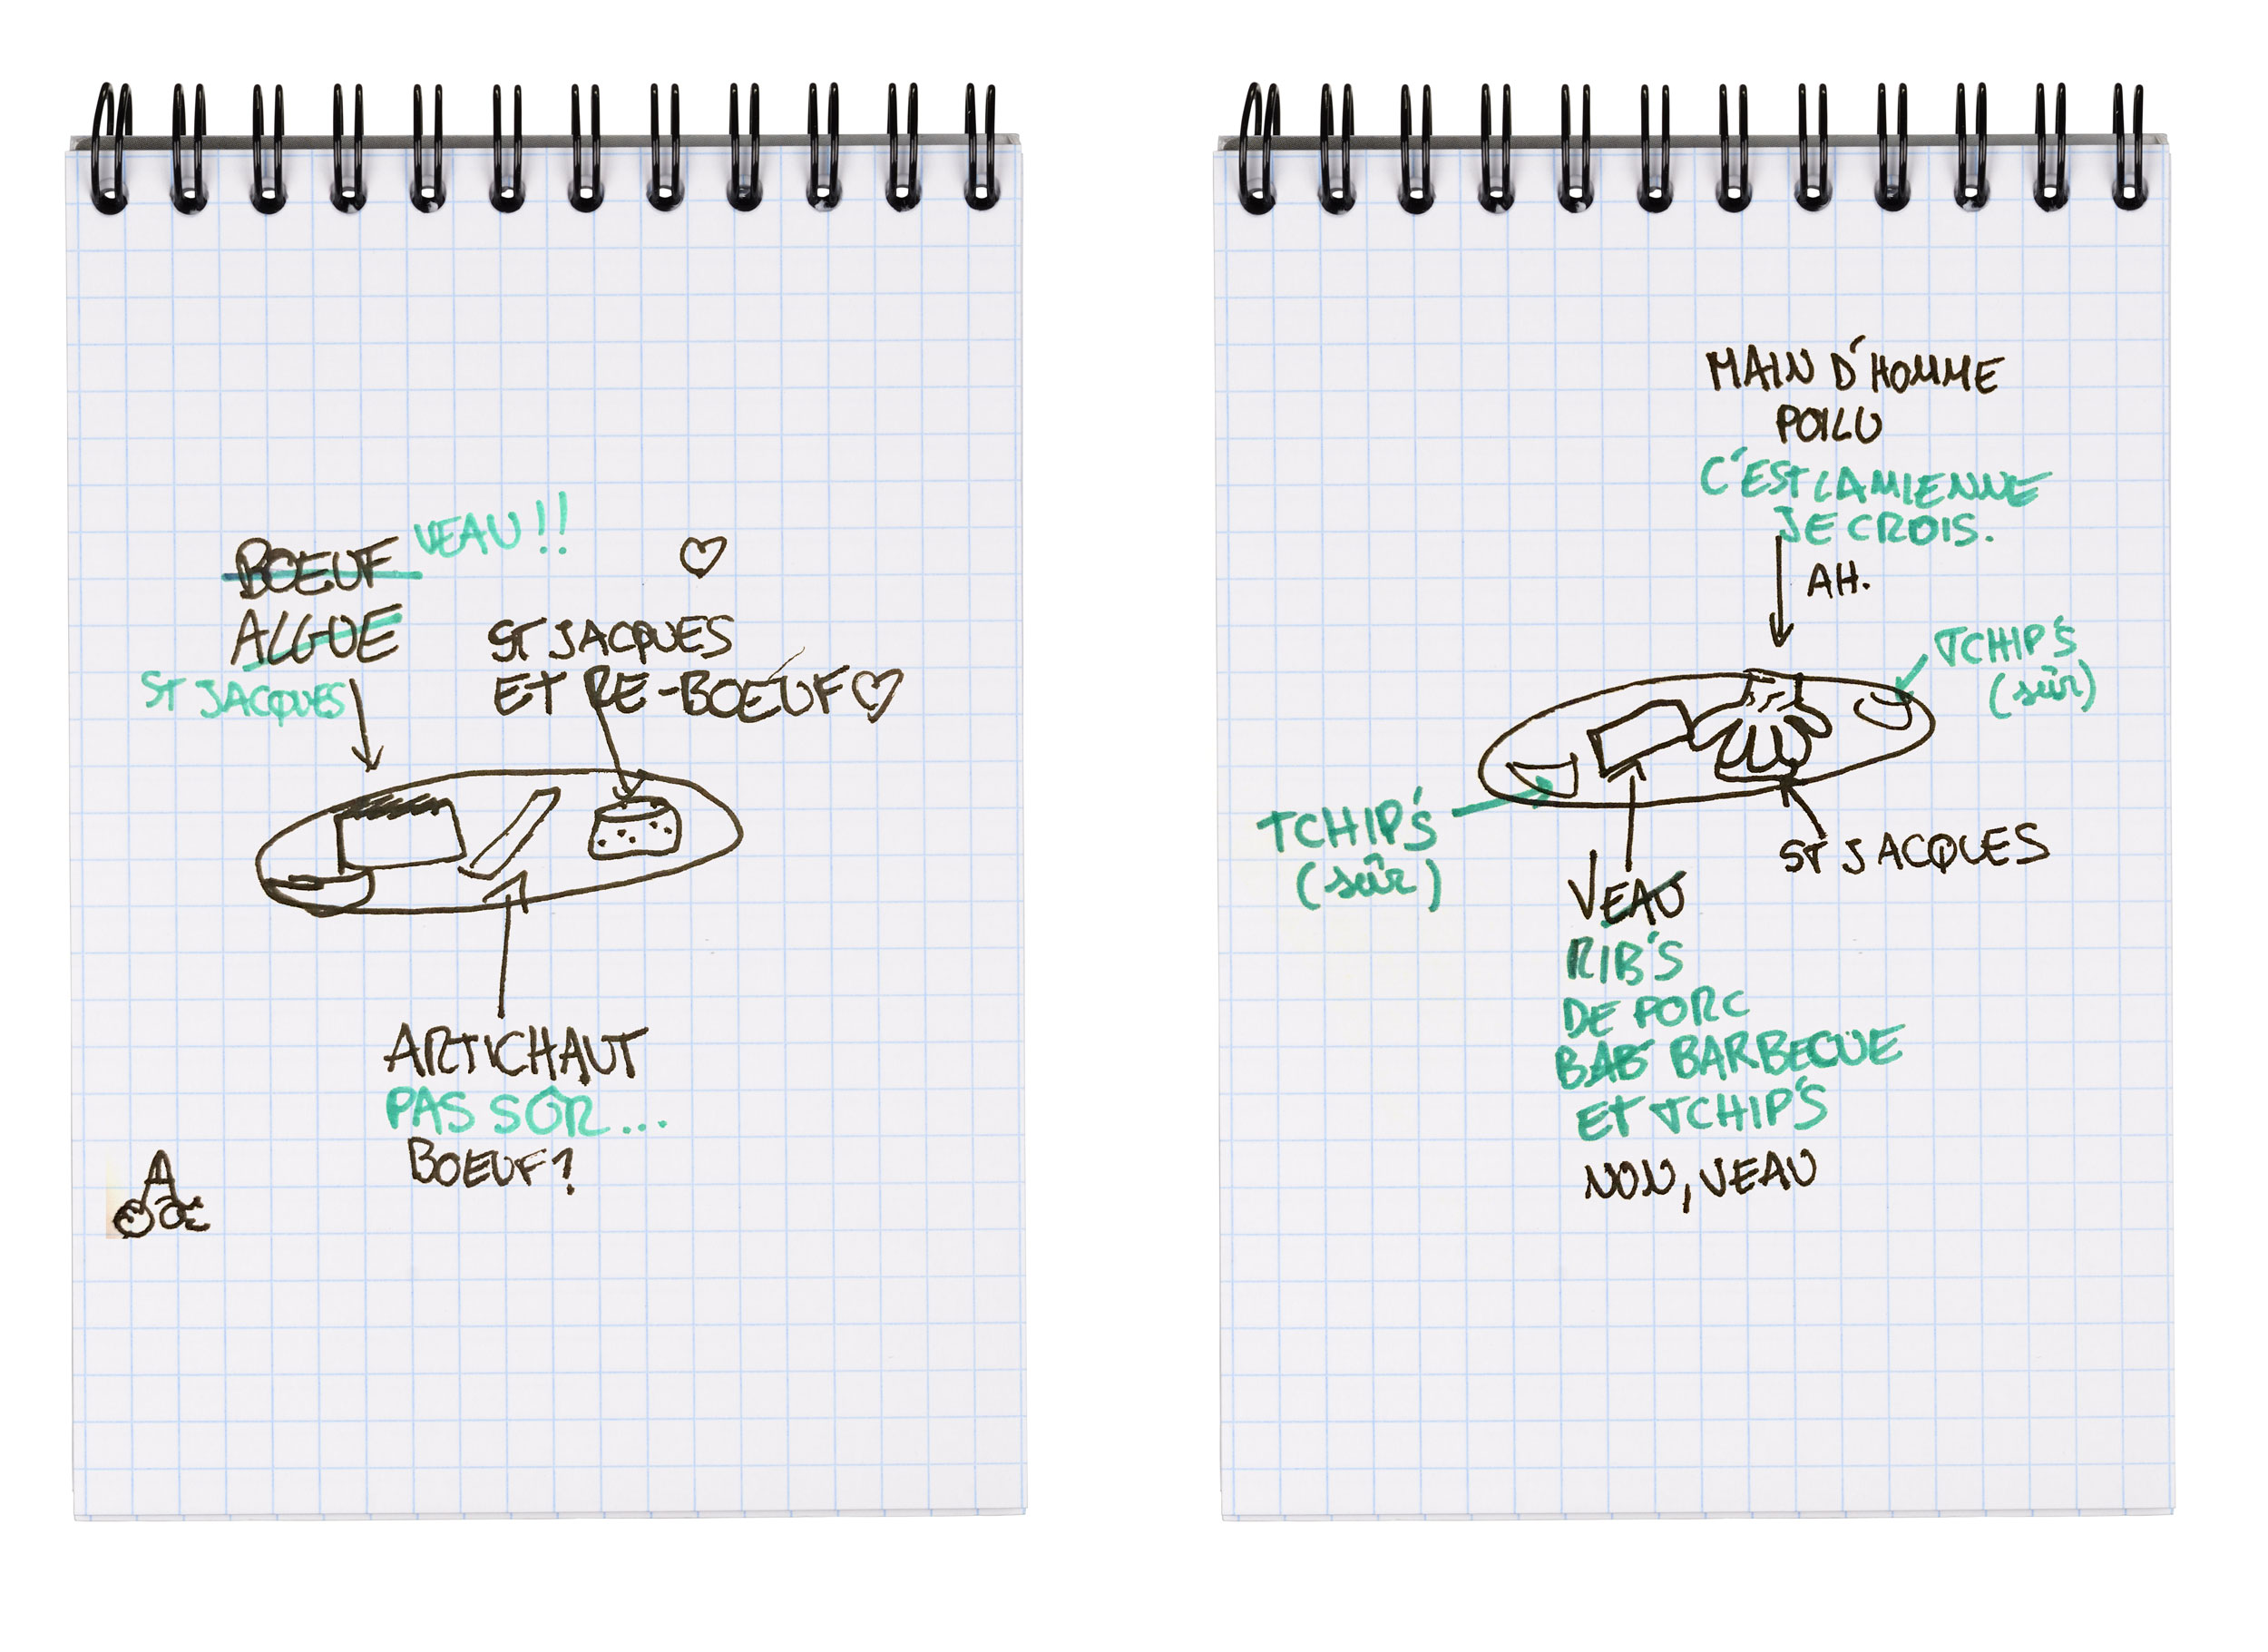 BOEUF VEAU!!
ALGUE
ST JACQUES
ST JACQUES
ET RE-BOEUF
ARTICHAUT
PAS SÛR...
BOEUF?
MAIN D'HOMME
POILU
C'EST LA MIENNE
JE CROIS.
AH.
TCHIP'S
(sûr)
TCHIP'S
(sûr)
ST JACQUES
VEAU
RIB'S
DE PORC
BAB BARBECUE
ET TCHIP'S
NON, VEAU